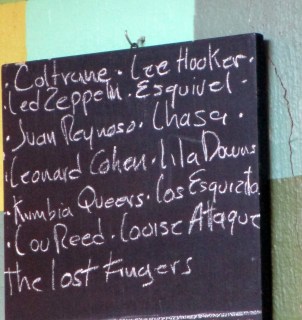 · Coltrane · Lee Hooker ·
Led Zeppelin · Esquivel ·
· Juan Reynoso · Chasa ·
Leonard Cohen · Lila Downs
· Kumbia Queers · Los Esquizito
· Lou Reed · Louise Attaque
The lost Fingers